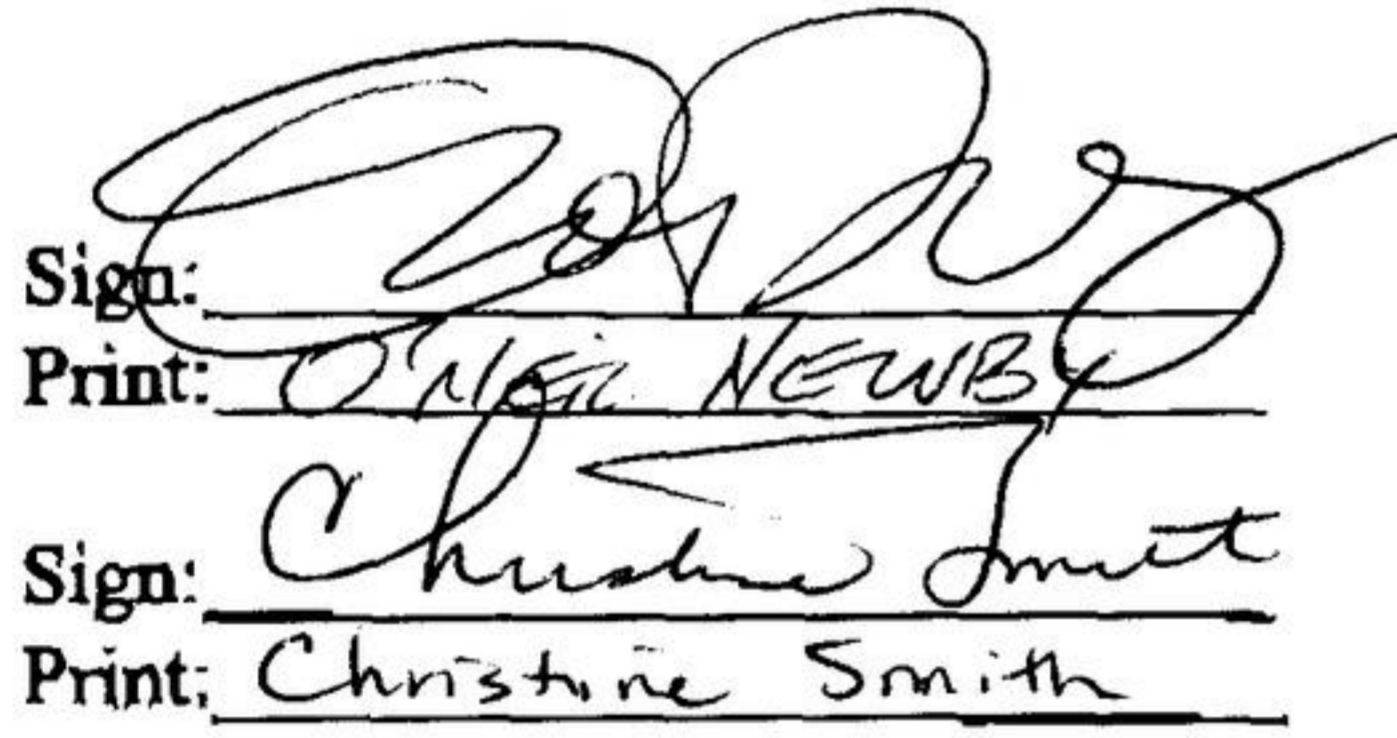 Sign:
Print: O'NEIL NEWBY
Sign: Christine Smith
Print: Christine Smith